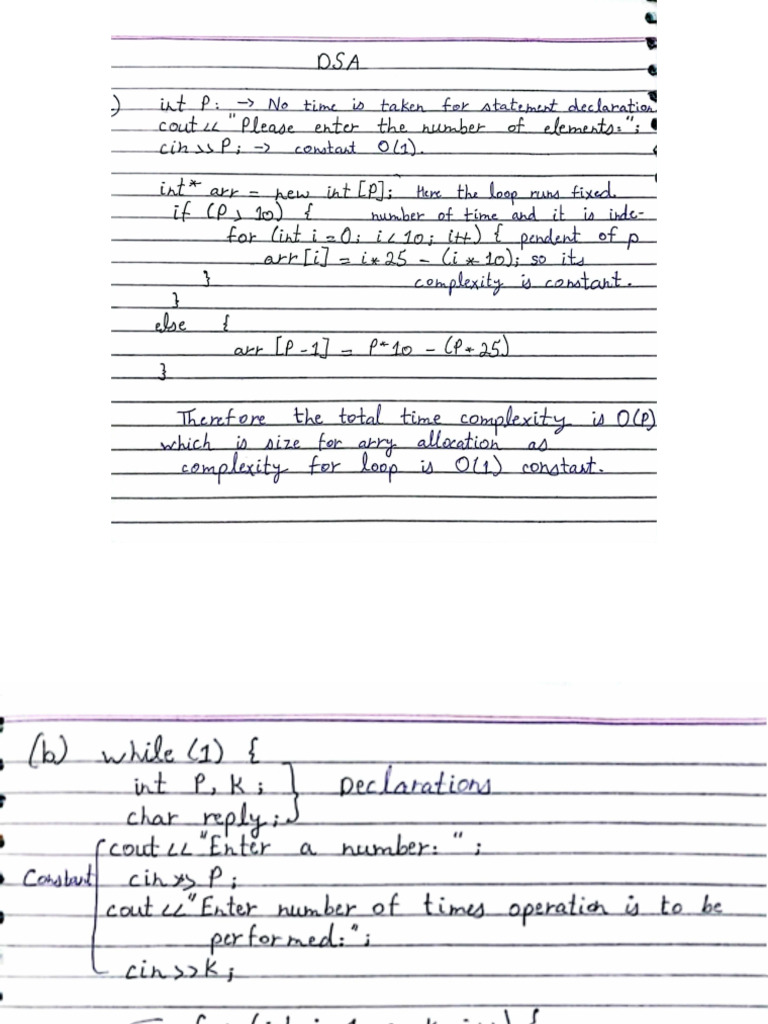 DSA
.) int P; → No time is taken for statement declaration
cout << "Please enter the number of elements:";
cin >> P; → constant O(1).
int* arr = new int [P]; Here the loop runs fixed
if (P > 10) { number of time and it is inde-
for (int i = 0; i < 10; i++) { pendent of p
arr [i] = i * 25 - (i * 10); so its
} complexity is constant.
}
else {
arr [P - 1] = P * 10 - (P * 25)
}
Therefore the total time complexity is O(P)
which is size for arry allocation as
complexity for loop is O(1) constant.
(b) while (1) {
int P, K; } Declarations
char reply;
cout << "Enter a number: ";
Constant cin >> P;
cout << "Enter number of times operation is to be
performed:";
cin >> K;